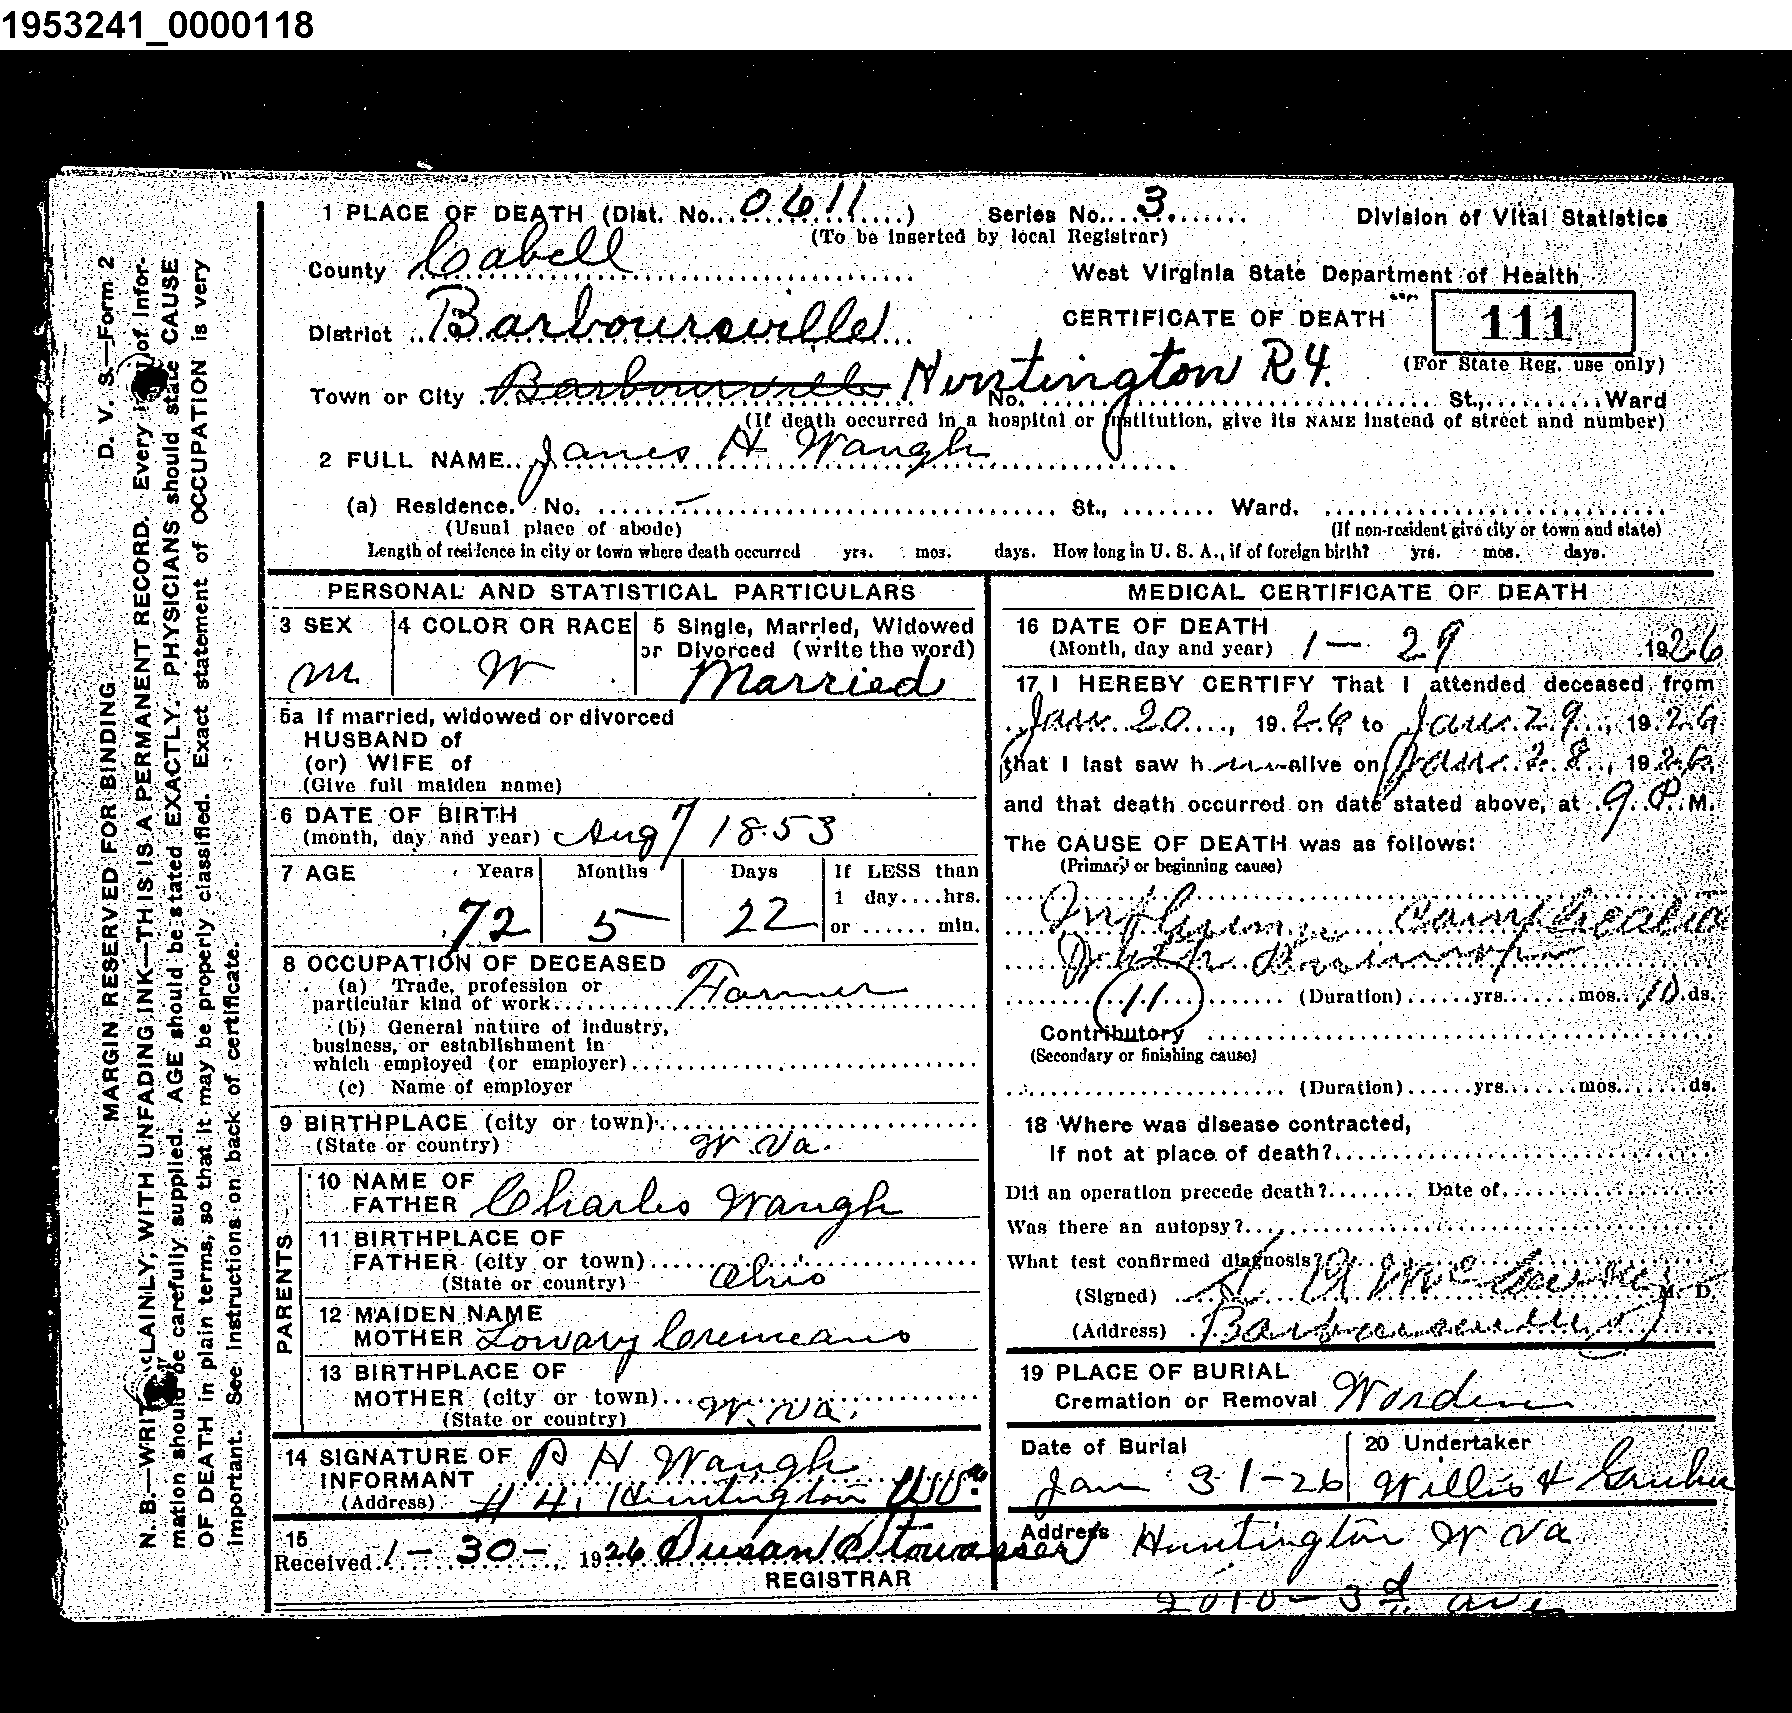 1953241_0000118
1 PLACE OF DEATH (Dist. No. 0611) Series No. 3 Division of Vital Statistics
(To be inserted by local Registrar)
County Cabell West Virginia State Department of Health
District Barboursville CERTIFICATE OF DEATH 111
(For State Reg. use only)
Town or City Barboursville Huntington R4. No. St., Ward
(If death occurred in a hospital or institution, give its NAME instead of street and number)
2 FULL NAME James H Waugh
(a) Residence. No. – St., Ward.
(Usual place of abode) (If non-resident give city or town and state)
Length of residence in city or town where death occurred yrs. mos. days. How long in U. S. A., if of foreign birth? yrs. mos. days.
PERSONAL AND STATISTICAL PARTICULARS
3 SEX 4 COLOR OR RACE 5 Single, Married, Widowed
or Divorced (write the word)
M. W Married
5a If married, widowed or divorced
HUSBAND of
(or) WIFE of
(Give full maiden name)
6 DATE OF BIRTH
(month, day and year) Aug 7 1853
7 AGE Years Months Days If LESS than
1 day....hrs.
72 5 22 or ...... min.
8 OCCUPATION OF DECEASED
(a) Trade, profession or
particular kind of work Farmer
(b) General nature of industry,
business, or establishment in
which employed (or employer)
(c) Name of employer
9 BIRTHPLACE (city or town)
(State or country) W. Va.
PARENTS
10 NAME OF
FATHER Charles Waugh
11 BIRTHPLACE OF
FATHER (city or town)
(State or country) Ohio
12 MAIDEN NAME
MOTHER Lowary Cremeans
13 BIRTHPLACE OF
MOTHER (city or town)
(State or country) W. Va.
14 SIGNATURE OF
INFORMANT H Waugh
(Address) 4, Huntington W.Va.
15
Received 1 – 30 – 1926 Susan Stowasser
REGISTRAR
MEDICAL CERTIFICATE OF DEATH
16 DATE OF DEATH
(Month, day and year) 1 – 29 1926
17 I HEREBY CERTIFY That I attended deceased from
Jan. 20, 1926 to Jan. 29, 1926
that I last saw him alive on Jan. 28, 1926,
and that death occurred on date stated above, at 9 P. M.
The CAUSE OF DEATH was as follows:
(Primary or beginning cause)
with
11 (Duration) yrs. mos. 10 ds.
Contributory
(Secondary or finishing cause)
(Duration) yrs. mos. ds.
18 Where was disease contracted,
If not at place of death?
Did an operation precede death? Date of
Was there an autopsy?
What test confirmed diagnosis?
(Signed) M. D.
(Address) Barboursville
19 PLACE OF BURIAL
Cremation or Removal Worden
Date of Burial 20 Undertaker
Jan 31-26 Willis &
Address Huntington W Va
2010 – 3rd ave
D. V. S.—Form 2
MARGIN RESERVED FOR BINDING
N. B.—WRITE PLAINLY, WITH UNFADING INK—THIS IS A PERMANENT RECORD. Every item of infor-
mation should be carefully supplied. AGE should be stated EXACTLY. PHYSICIANS should state CAUSE
OF DEATH in plain terms, so that it may be properly classified. Exact statement of OCCUPATION is very
important. See instructions on back of certificate.